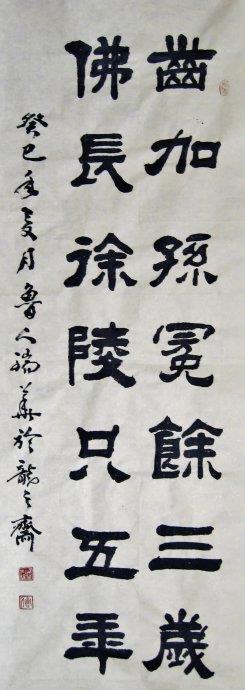 齒加孫冕餘三歲
佛長徐陵只五年
癸巳年夏月魯人瑞華於龍之齋